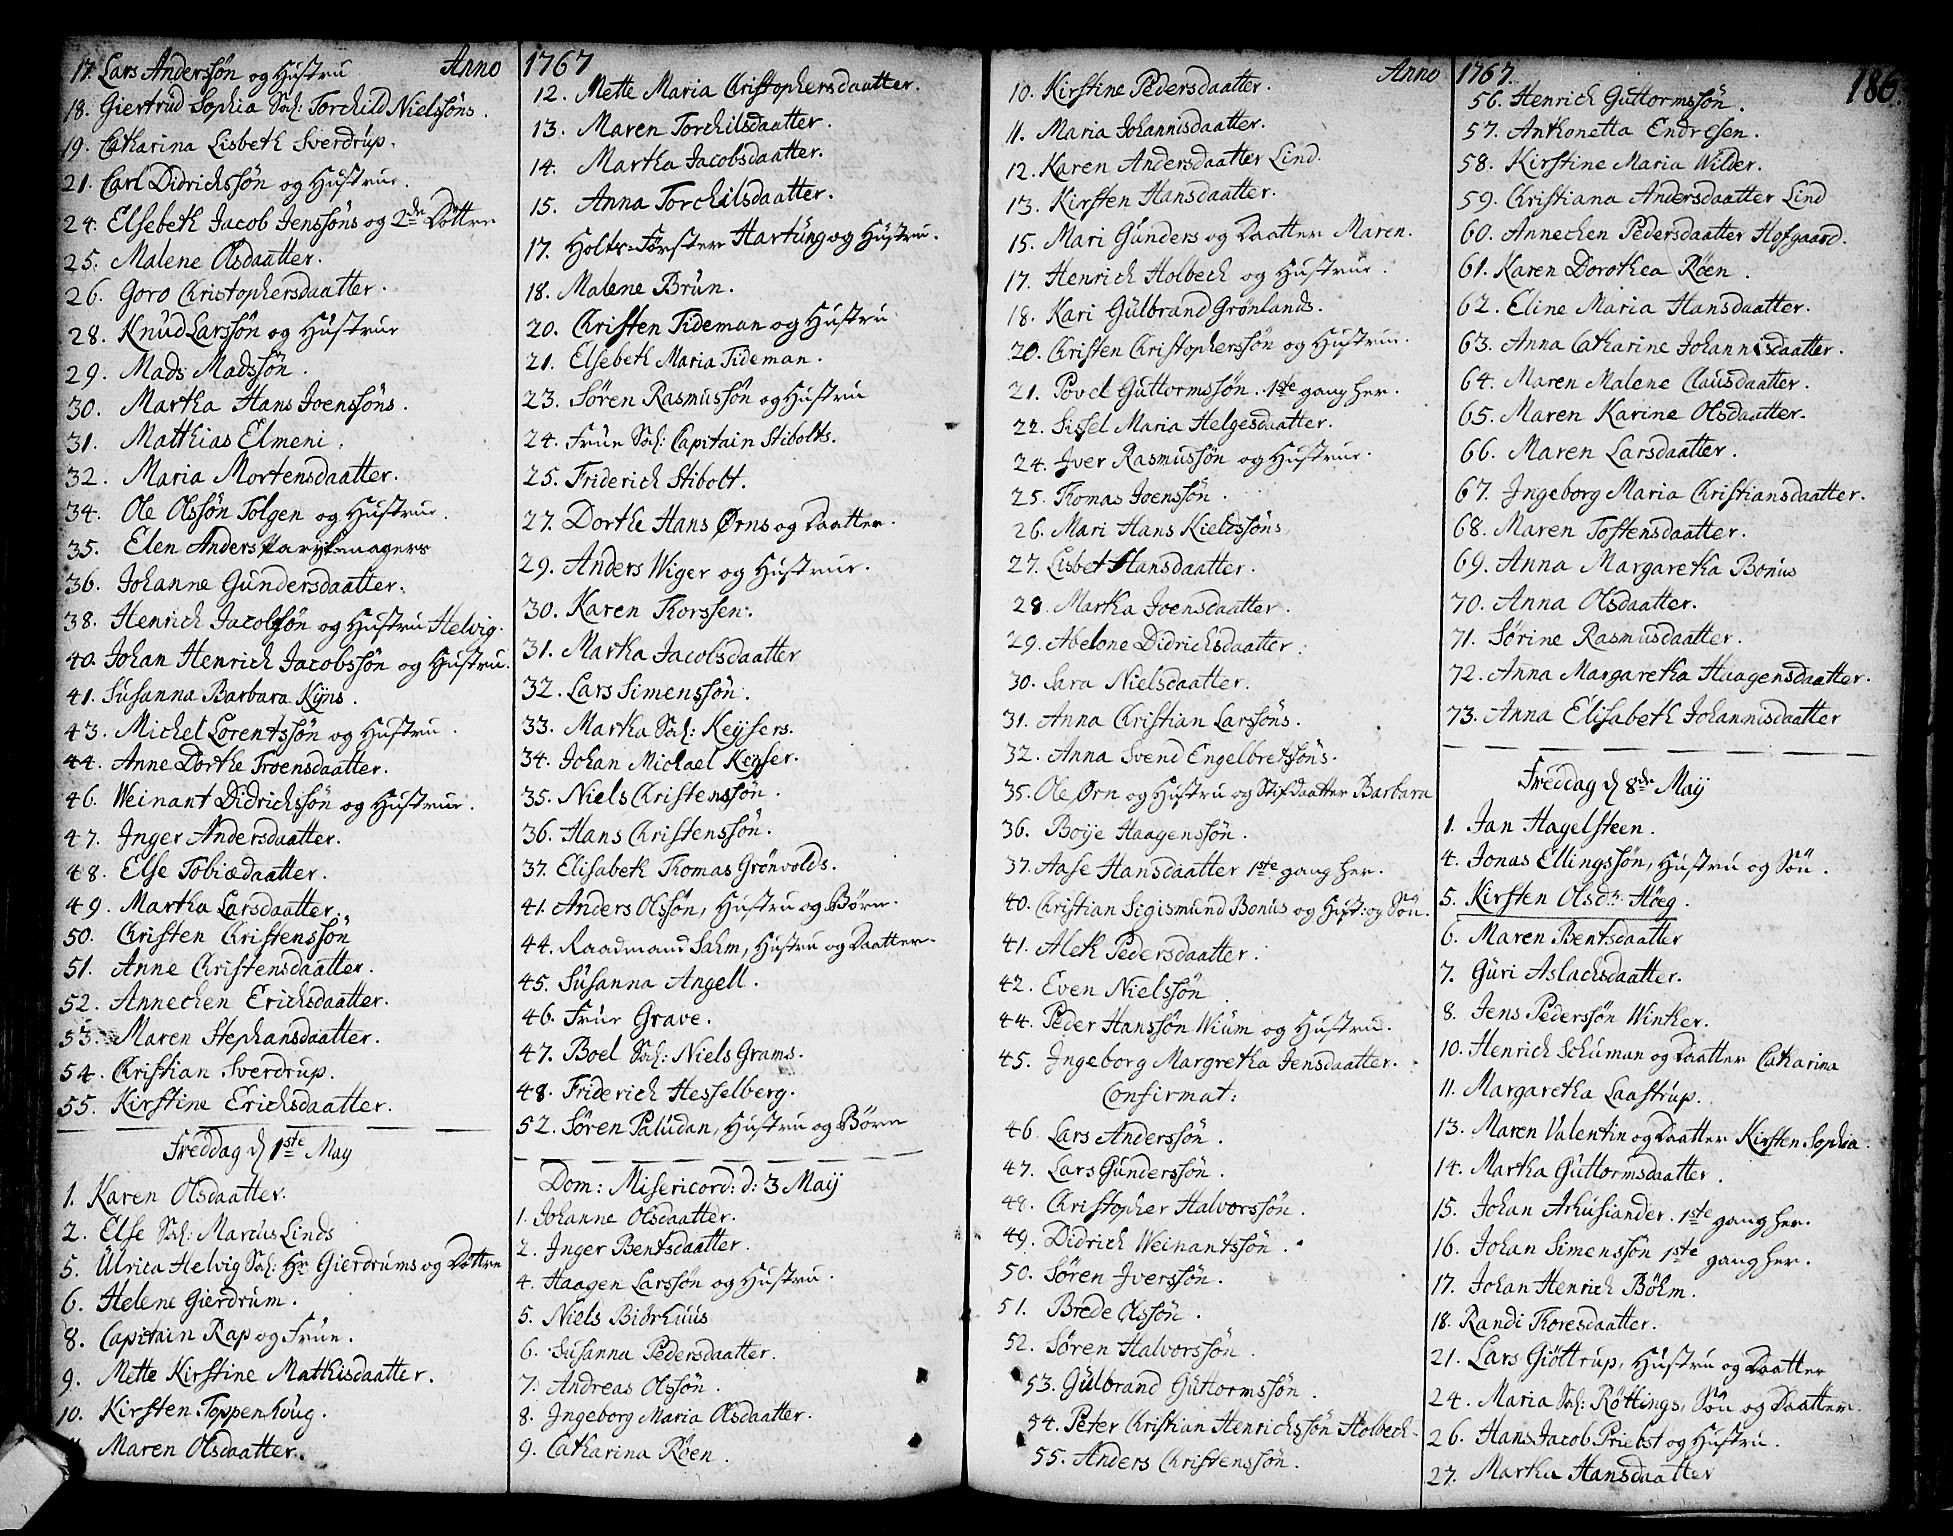 Anno 1767
17. Lars Anderssøn og Hustru
18. Giertrud Sophia Sal: Torchild Nielssøns.
19. Catharina Lisbeth Sverdrup.
21. Carl Didrichssøn og Hustrue.
24. Elsebeth Jacob Jenssøns og 2de Døttre
25. Malene Olsdaatter.
26. Goro Christophersdaatter.
28. Knud Larssøn og Hustrue
29. Mads Madssøn.
30. Martha Hans Joenssøns.
31. Matthias Elmeni.
32. Maria Mortensdaatter.
34. Ole Olssøn Tolgen og Hustrue.
35. Elen Anders Parykmagers
36. Johanne Gundersdaatter.
38. Henrich Jacobssøn og Hustru Helvig.
40. Johan Henrich Jacobssøn og Hustru.
41. Susanna Barbara Kyns.
43. Michel Lorentssøn og Hustru.
44. Anne Dorthe Troensdaatter.
46. Weinant Didrichssøn og Hustrue.
47. Inger Andersdaatter.
48. Else Tobiædaatter.
49. Martha Larsdaatter.
50. Christen Christenssøn
51. Anne Christensdaatter.
52. Annechen Erichsdaatter.
53. Maren Stephansdaatter.
54. Christian Sverdrup.
55. Kirstine Erichsdaatter.
Freddag d 1ste May
1. Karen Olsdaatter.
2. Else Sal: Marcus Linds
5. Ulrica Helvig Sal: Hr Gierdrums og Døttre
6. Helene Gierdrum.
8. Capitain Rap og Frue.
9. Mette Kirstine Mathisdaatter.
10. Kirsten Toppenhoug.
11. Maren Olsdaatter.
12. Mette Maria Christophersdaatter.
13. Maren Torchilsdaatter.
14. Martha Jacobsdaatter.
15. Anna Torchilsdaatter.
17. Holts-Førster Hartung og Hustru.
18. Malene Brun.
20. Christen Tideman og Hustru
21. Elsebeth Maria Tideman.
23. Søren Rasmussøn og Hustru
24. Frue Sal: Capitain Stibolts.
25. Friderich Stibolt.
27. Dorthe Hans Ørns og Daatter.
29. Anders Wiger og Hustrue.
30. Karen Thorssen.
31. Martha Jacobsdaatter
32. Lars Simenssøn.
33. Martha Sal: Keysers.
34. Johan Michael Keyser.
35. Niels Christenssøn.
36. Hans Christenssøn.
37. Elisabeth Thomas Grønvolds.
41. Anders Olssøn, Hustru og Børn.
44. Raadmand Sahm, Hustru og Daatter.
45. Susanna Angell.
46. Frue Grave.
47. Boel Sal: Niels Grams.
48. Friderich Hesselberg.
52. Søren Paludan, Hustru og Børn
Dom: Misericord: d: 3 Maij
1. Johanne Olsdaatter.
2. Inger Bentsdaatter.
4. Haagen Larssøn og Hustru.
5. Niels Biørhuus
6. Susanna Pedersdaatter.
7. Andreas Olssøn.
8. Ingeborg Maria Olsdaatter.
9. Catharina Røen.
Anno 1767.
186.
10. Kirstine Pedersdaatter.
11. Maria Johannisdaatter.
12. Karen Andersdaatter Lind.
13. Kirsten Hansdaatter.
15. Mari Gunders og Daatter Maren.
17. Henrich Holbech og Hustrue.
18. Kari Gulbrand Grønlands.
20. Christen Christopherssøn og Hustrue.
21. Povel Guttormssøn. 1ste gang her.
22. Sissel Maria Helgesdaatter.
24. Iver Rasmussøn og Hustrue.
25. Thomas Joenssøn.
26. Mari Hans Kieldssøns
27. Lisbet Hansdaatter.
28. Martha Joensdaatter.
29. Abelone Didrichsdaatter.
30. Sara Nielsdaatter.
31. Anna Christian Larssøns.
32. Anna Svend Engelbretssøns.
35. Ole Ørn og Hustru og Stifdaatter Barbara
36. Boije Haagenssøn.
37. Aase Hansdaatter 1ste gang her.
40. Christian Sigismund Bonus og Hust: og Søn.
41. Aleth Pedersdaatter.
42. Even Nielssøn
44. Peder Hanssøn Wium og Hustru.
45. Ingeborg Margretha Jensdaatter.
Confirmat:
46. Lars Anderssøn.
47. Lars Gunderssøn.
48. Christopher Halvorssøn.
49. Didrich Weinantssøn.
50. Søren Iverssøn.
51. Brede Olssøn.
52. Søren Halvorssøn.
53. Gulbrand Guttormssøn.
54. Peter Christian Henrichssøn Holbech.
55. Anders Christenssøn.
56. Henrich Guttormssøn.
57. Anthonetta Endresen.
58. Kirstine Maria Wilder.
59. Christiana Andersdaatter Lind
60. Annechen Pedersdaatter Hofgaard.
61. Karen Dorothea Røen.
62. Eline Maria Hansdaatter.
63. Anna Catharine Johannisdaatter.
64. Maren Malene Clausdaatter.
65. Maren Karine Olsdaatter.
66. Maren Larsdaatter.
67. Ingeborg Maria Christiansdaatter.
68. Maren Tostensdaatter.
69. Anna Margaretha Bonus
70. Anna Olsdaatter.
71. Sørine Rasmusdaatter.
72. Anna Margaretha Haagensdaatter.
73. Anna Elisabeth Johannisdaatter
Freddag d 8de May
1. Jan Hagelsteen.
4. Jonas Ellingssøn, Hustru og Søn.
5. Kirsten Olsdr. Høeg.
6. Maren Bentsdaatter
7. Guri Aslachsdaatter.
8. Jens Pederssøn Winther.
10. Henrich Schuman og Daatter Catharina
11. Margaretha Laastrup.
13. Maren Valentin og Daatter Kirsten Sophia.
14. Martha Guttormsdaatter.
15. Johan Arhusiander. 1ste gang her.
16. Johan Simenssøn 1ste gang her.
17. Johan Henrich Bøhm.
18. Randi Thoresdaatter.
21. Lars Giøttrup, Hustru og Daatter
24. Maria Sal: Røttings, Søn og Daatter.
26. Hans Jacob Priebst og Hustru.
27. Martha Hansdaatter